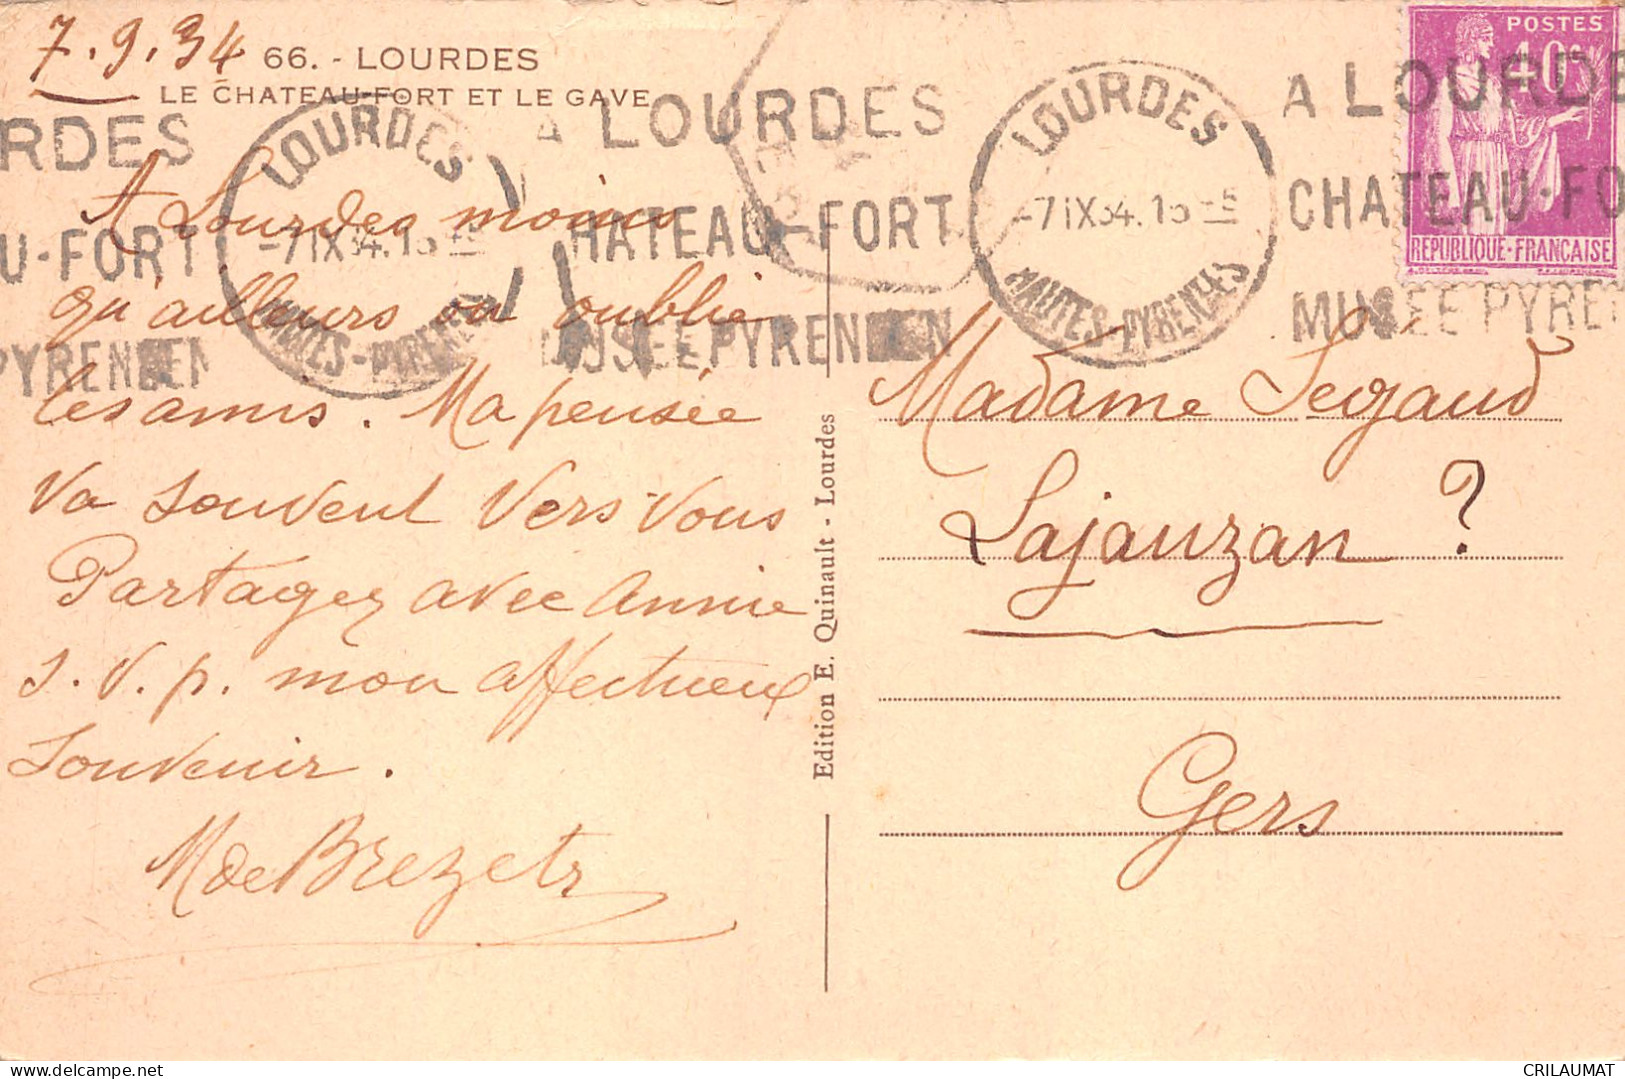 7.9.34
66. - LOURDES
LE CHATEAU-FORT ET LE GAVE
RDES
U-FORT
PYRENEEN
LOURDES
-7 IX 34. 15
HAUTES-PYRENEES
A LOURDES
HATEAU-FORT
MUSEE PYRENEEN
LOURDES
-7 IX 34. 15
HAUTES-PYRENEES
A LOURDE
CHATEAU-FO
MUSEE PYREN
POSTES
40c
REPUBLIQUE-FRANÇAISE
A Lourdes moins
qu'ailleurs on oublie
les amis. Ma pensée
va souvent vers vous
Partagez avec Annie
s.v.p. mon affectueux
souvenir.
M de Brezetz
Edition E. Quinault - Lourdes
Madame Segaud
Lajauzan ?
Gers
CRILAUMAT